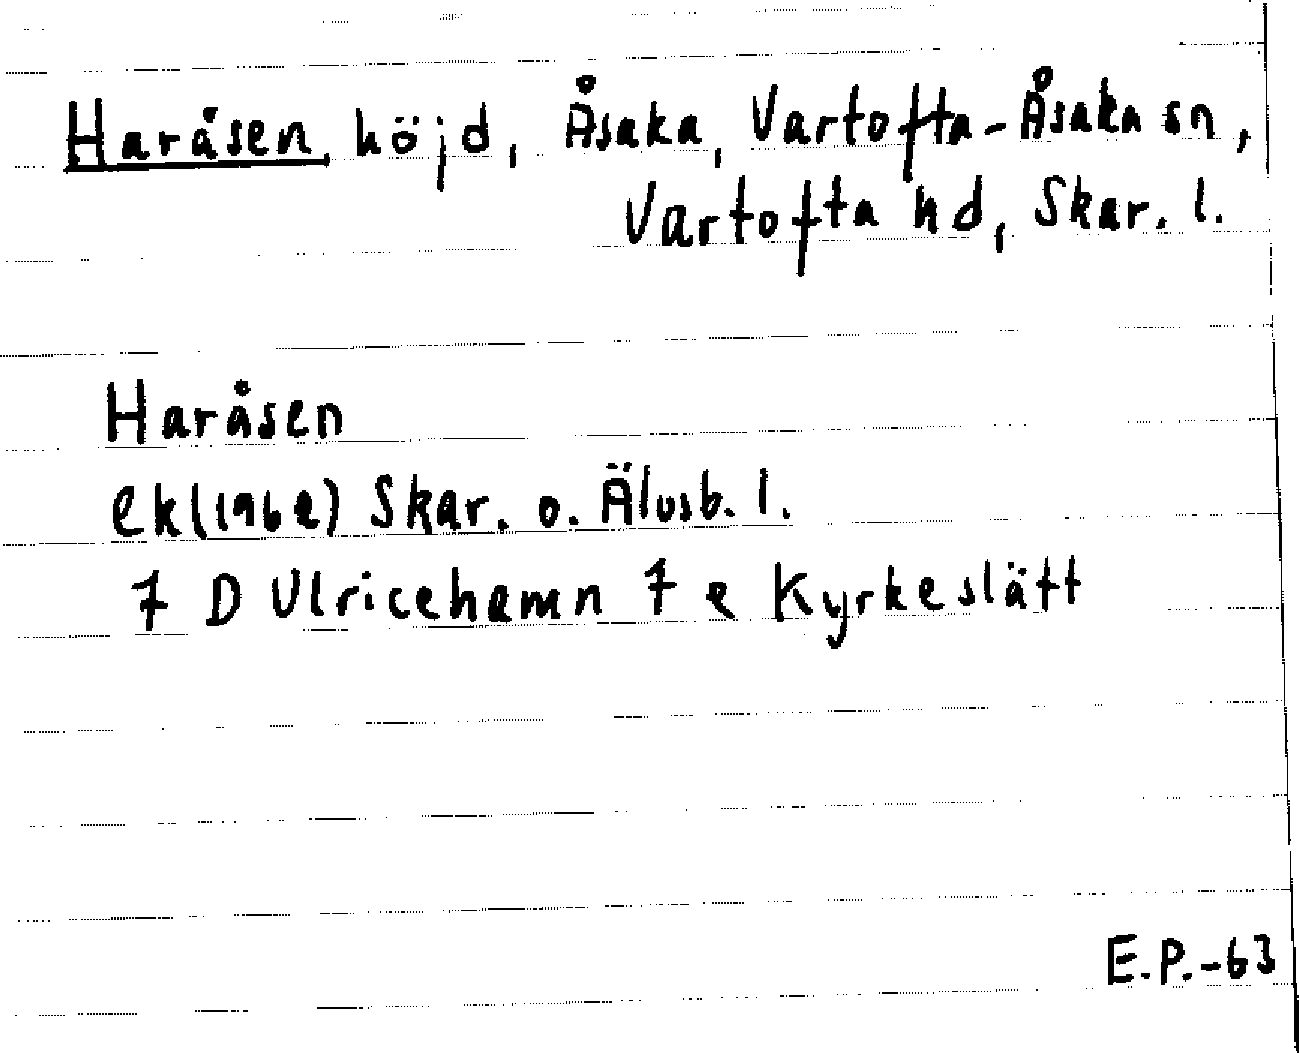 Haråsen, höjd, Åsaka, Vartofta-Åsaka sn,
Vartofta hd, Skar. l.
Haråsen
ek(1962) Skar. o. Älvsb. l.
7 D Ulricehamn 7 e Kyrkeslätt
E.P.-63